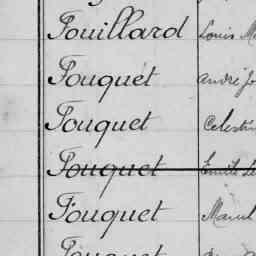 Fouillard Louis
Fouquet André
Fouquet Celestin
Fouquet Emile
Fouquet
Fouquet